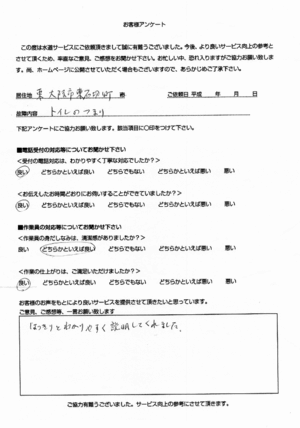 お客様アンケート
この度は水道サービスにご依頼頂きまして誠に有難うございました。今後、より良いサービス向上の参考と
させて頂くため、率直なご意見、ご感想をお聞かせ下さい。お忙しい中、恐れ入りますがご協力お願い致し
ます。尚、ホームページに公開させていただく場合もございますので、あらかじめご了承下さい。
居住地 東大阪市東石切町 様 ご依頼日 平成 年 月 日
故障内容 トイレのつまり
下記アンケートにご協力お願い致します。該当項目に〇印をつけて下さい。
■電話受付の対応等についてお聞かせ下さい
<受付の電話対応は、わかりやすく丁寧な対応でしたか?>
良い どちらかといえば良い どちらでもない どちらかといえば悪い 悪い
<お伝えしたお時間どおりにお伺いすることができていましたか?>
良い どちらかといえば良い どちらでもない どちらかといえば悪い 悪い
■作業員の対応等についてお聞かせ下さい
<作業員の身だしなみは、清潔感がありましたか?>
良い どちらかといえば良い どちらでもない どちらかといえば悪い 悪い
<作業の仕上がりは、ご満足いただけましたか?>
良い どちらかといえば良い どちらでもない どちらかといえば悪い 悪い
お客様の声をもとにより良いサービスを提供させて頂きたいと思っています。
ご意見、ご感想等、一言お願い致します
はっきりとわかりやすく説明してくれました。
ご協力有難うございました。サービス向上の参考にさせて頂きます。